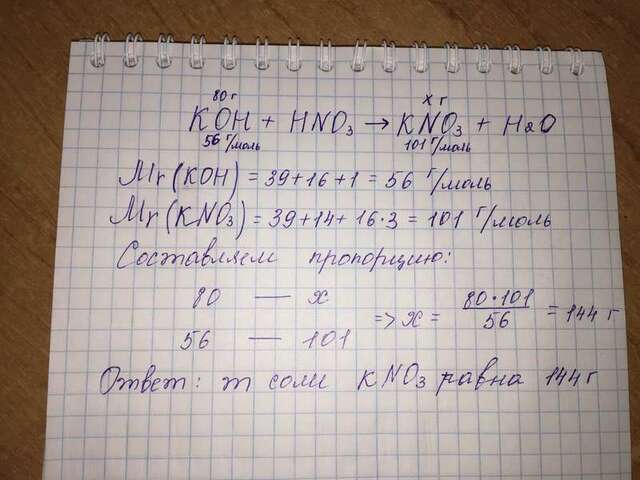 80 г х г
KOH + HNO₃ → KNO₃ + H₂O
56 г/моль 101 г/моль
Mr (KOH) = 39+16+1 = 56 г/моль
Mr (KNO₃) = 39+14+16·3 = 101 г/моль
Составляем пропорцию:
80 — x
56 — 101 => x = 80·101/56 = 144 г
Ответ: m соли KNO₃ равна 144 г